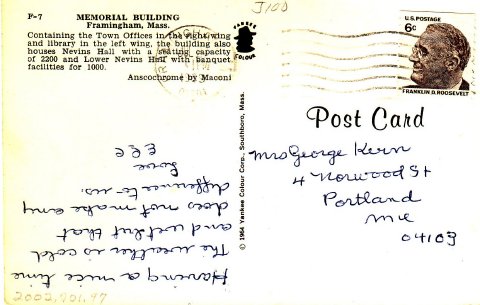 F-7
MEMORIAL BUILDING
Framingham, Mass.
Containing the Town Offices in the right wing
and library in the left wing, the building also
houses Nevins Hall with a seating capacity
of 2200 and Lower Nevins Hall with banquet
facilities for 1000.
Anscochrome by Maconi
YANKEE
COLOUR
J100
U.S. POSTAGE
6c
FRANKLIN D. ROOSEVELT
© 1964 Yankee Colour Corp., Southboro, Mass.
Post Card
Mrs George Kern
4 Norwood St
Portland
Me
04103
Having a nice time
The weather is cold
and wet but that
does not make any
difference to us.
Love
2002.701.97